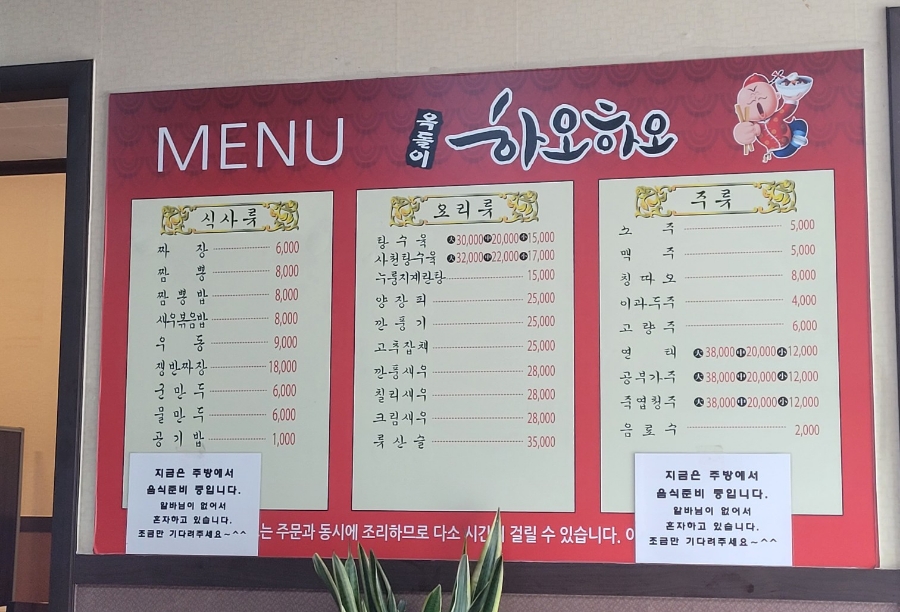 MENU
옥돌이
하오하오
식사류
짜장 6,000
짬뽕 8,000
짬뽕밥 8,000
새우볶음밥 8,000
우동 9,000
쟁반짜장 18,000
군만두 6,000
물만두 6,000
공기밥 1,000
요리류
탕수육 大30,000 中20,000 小15,000
사천탕수육 大32,000 中22,000 小17,000
누룽지계란탕 15,000
양장피 25,000
깐풍기 25,000
고추잡채 25,000
깐풍새우 28,000
칠리새우 28,000
크림새우 28,000
류산슬 35,000
주류
소주 5,000
맥주 5,000
칭따오 8,000
이과두주 4,000
고량주 6,000
연태 大38,000 中20,000 小12,000
공부가주 大38,000 中20,000 小12,000
죽엽청주 大38,000 中20,000 小12,000
음료수 2,000
지금은 주방에서
음식준비 중입니다.
알바님이 없어서
혼자하고 있습니다.
조금만 기다려주세요~^^
는 주문과 동시에 조리하므로 다소 시간 걸릴 수 있습니다.
지금은 주방에서
음식준비 중입니다.
알바님이 없어서
혼자하고 있습니다.
조금만 기다려주세요~^^